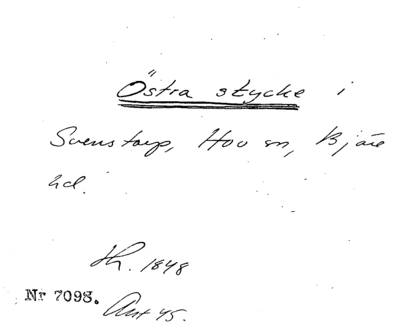 Östra stycke i
Svenstorp, Hov sn, Bjäre
hd.
Th. 1848
Nr 7098.
Ant 45.